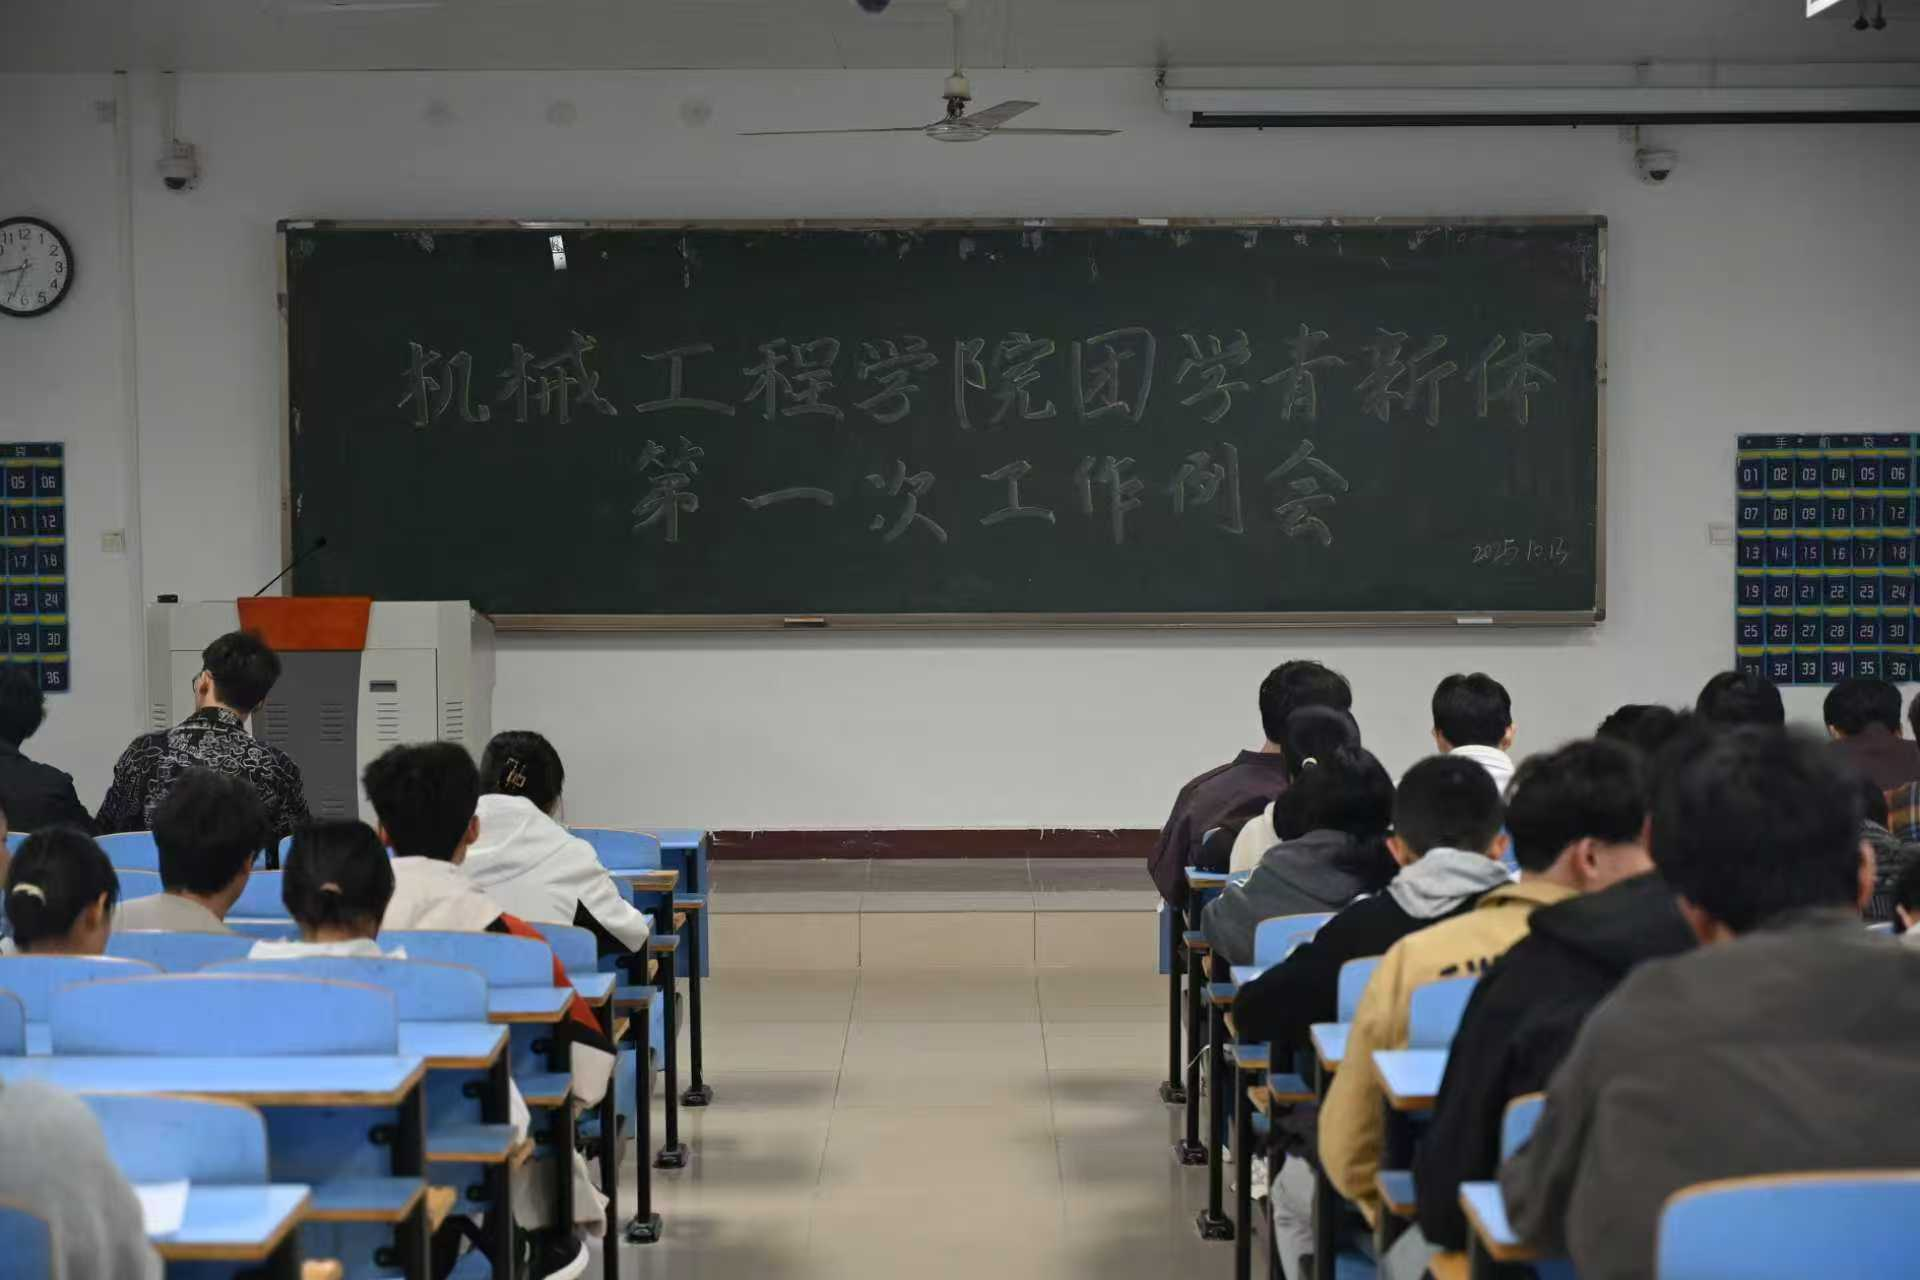 机械工程学院团学青新体
第一次工作例会
2025.10.13
12 1 2 3 4 5 6 7 11
袋
05 06
11 12
17 18
23 24
29 30
36
手机袋
01 02 03 04 05 06
07 08 09 10 11 12
13 14 15 16 17 18
19 20 21 22 23 24
25 26 27 28 29 30
31 32 33 34 35 36